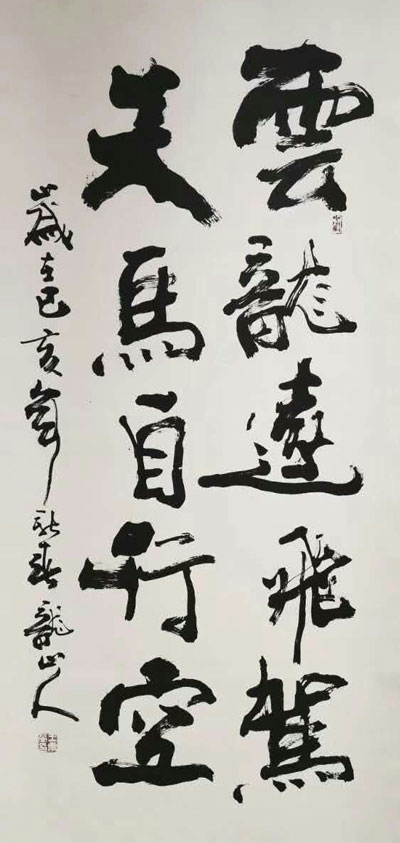 雲龍遠飛駕
天馬自行空
歲在己亥年新春龍山人